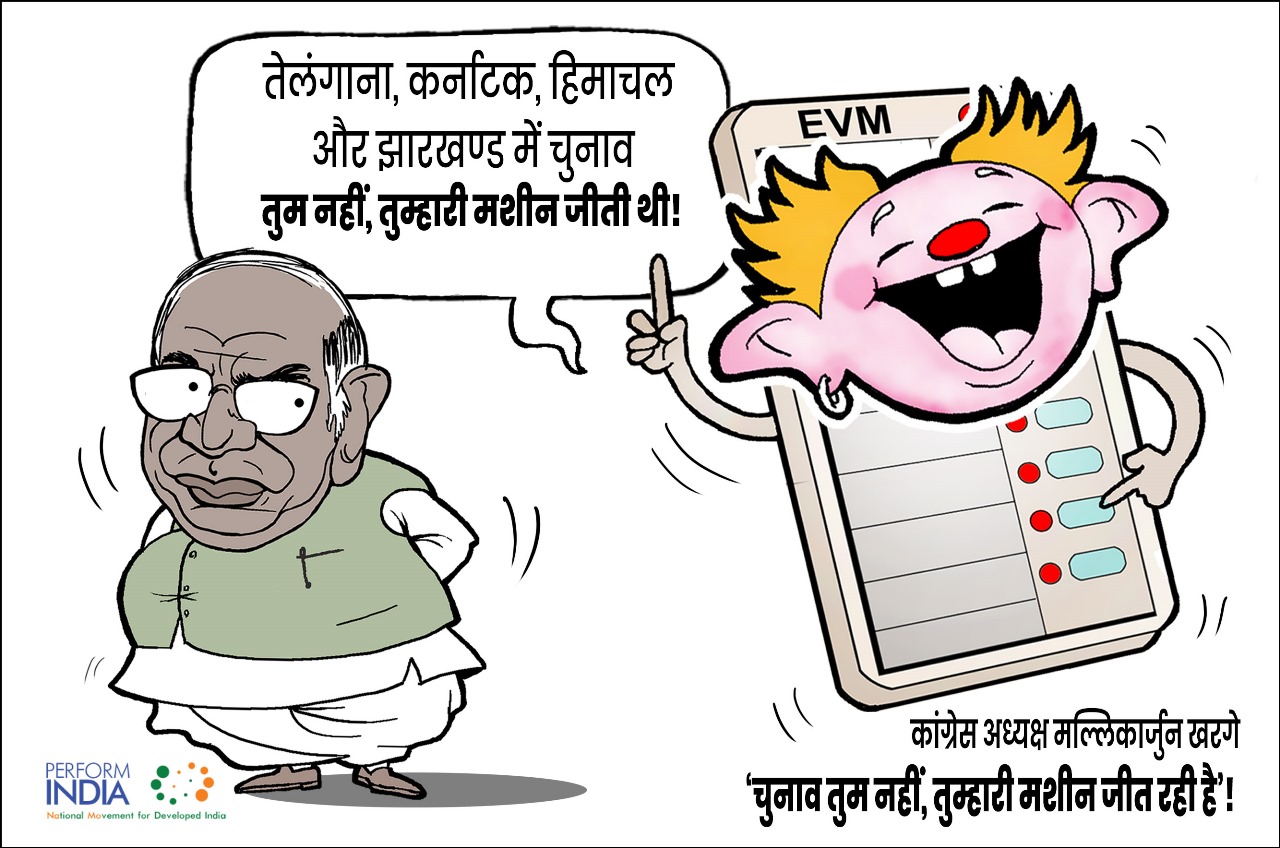 तेलंगाना, कर्नाटक, हिमाचल
और झारखण्ड में चुनाव
तुम नहीं, तुम्हारी मशीन जीती थी!
EVM
कांग्रेस अध्यक्ष मल्लिकार्जुन खरगे
‘चुनाव तुम नहीं, तुम्हारी मशीन जीत रही है’!
PERFORM
INDIA
National Movement for Developed India